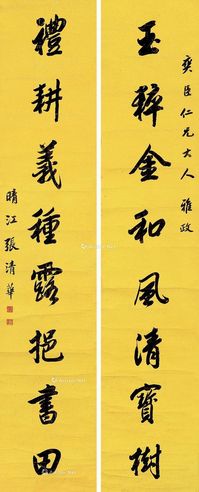 奕臣仁兄大人雅政
玉粹金和風清寶樹
禮耕義種露挹書田
晴江張清華